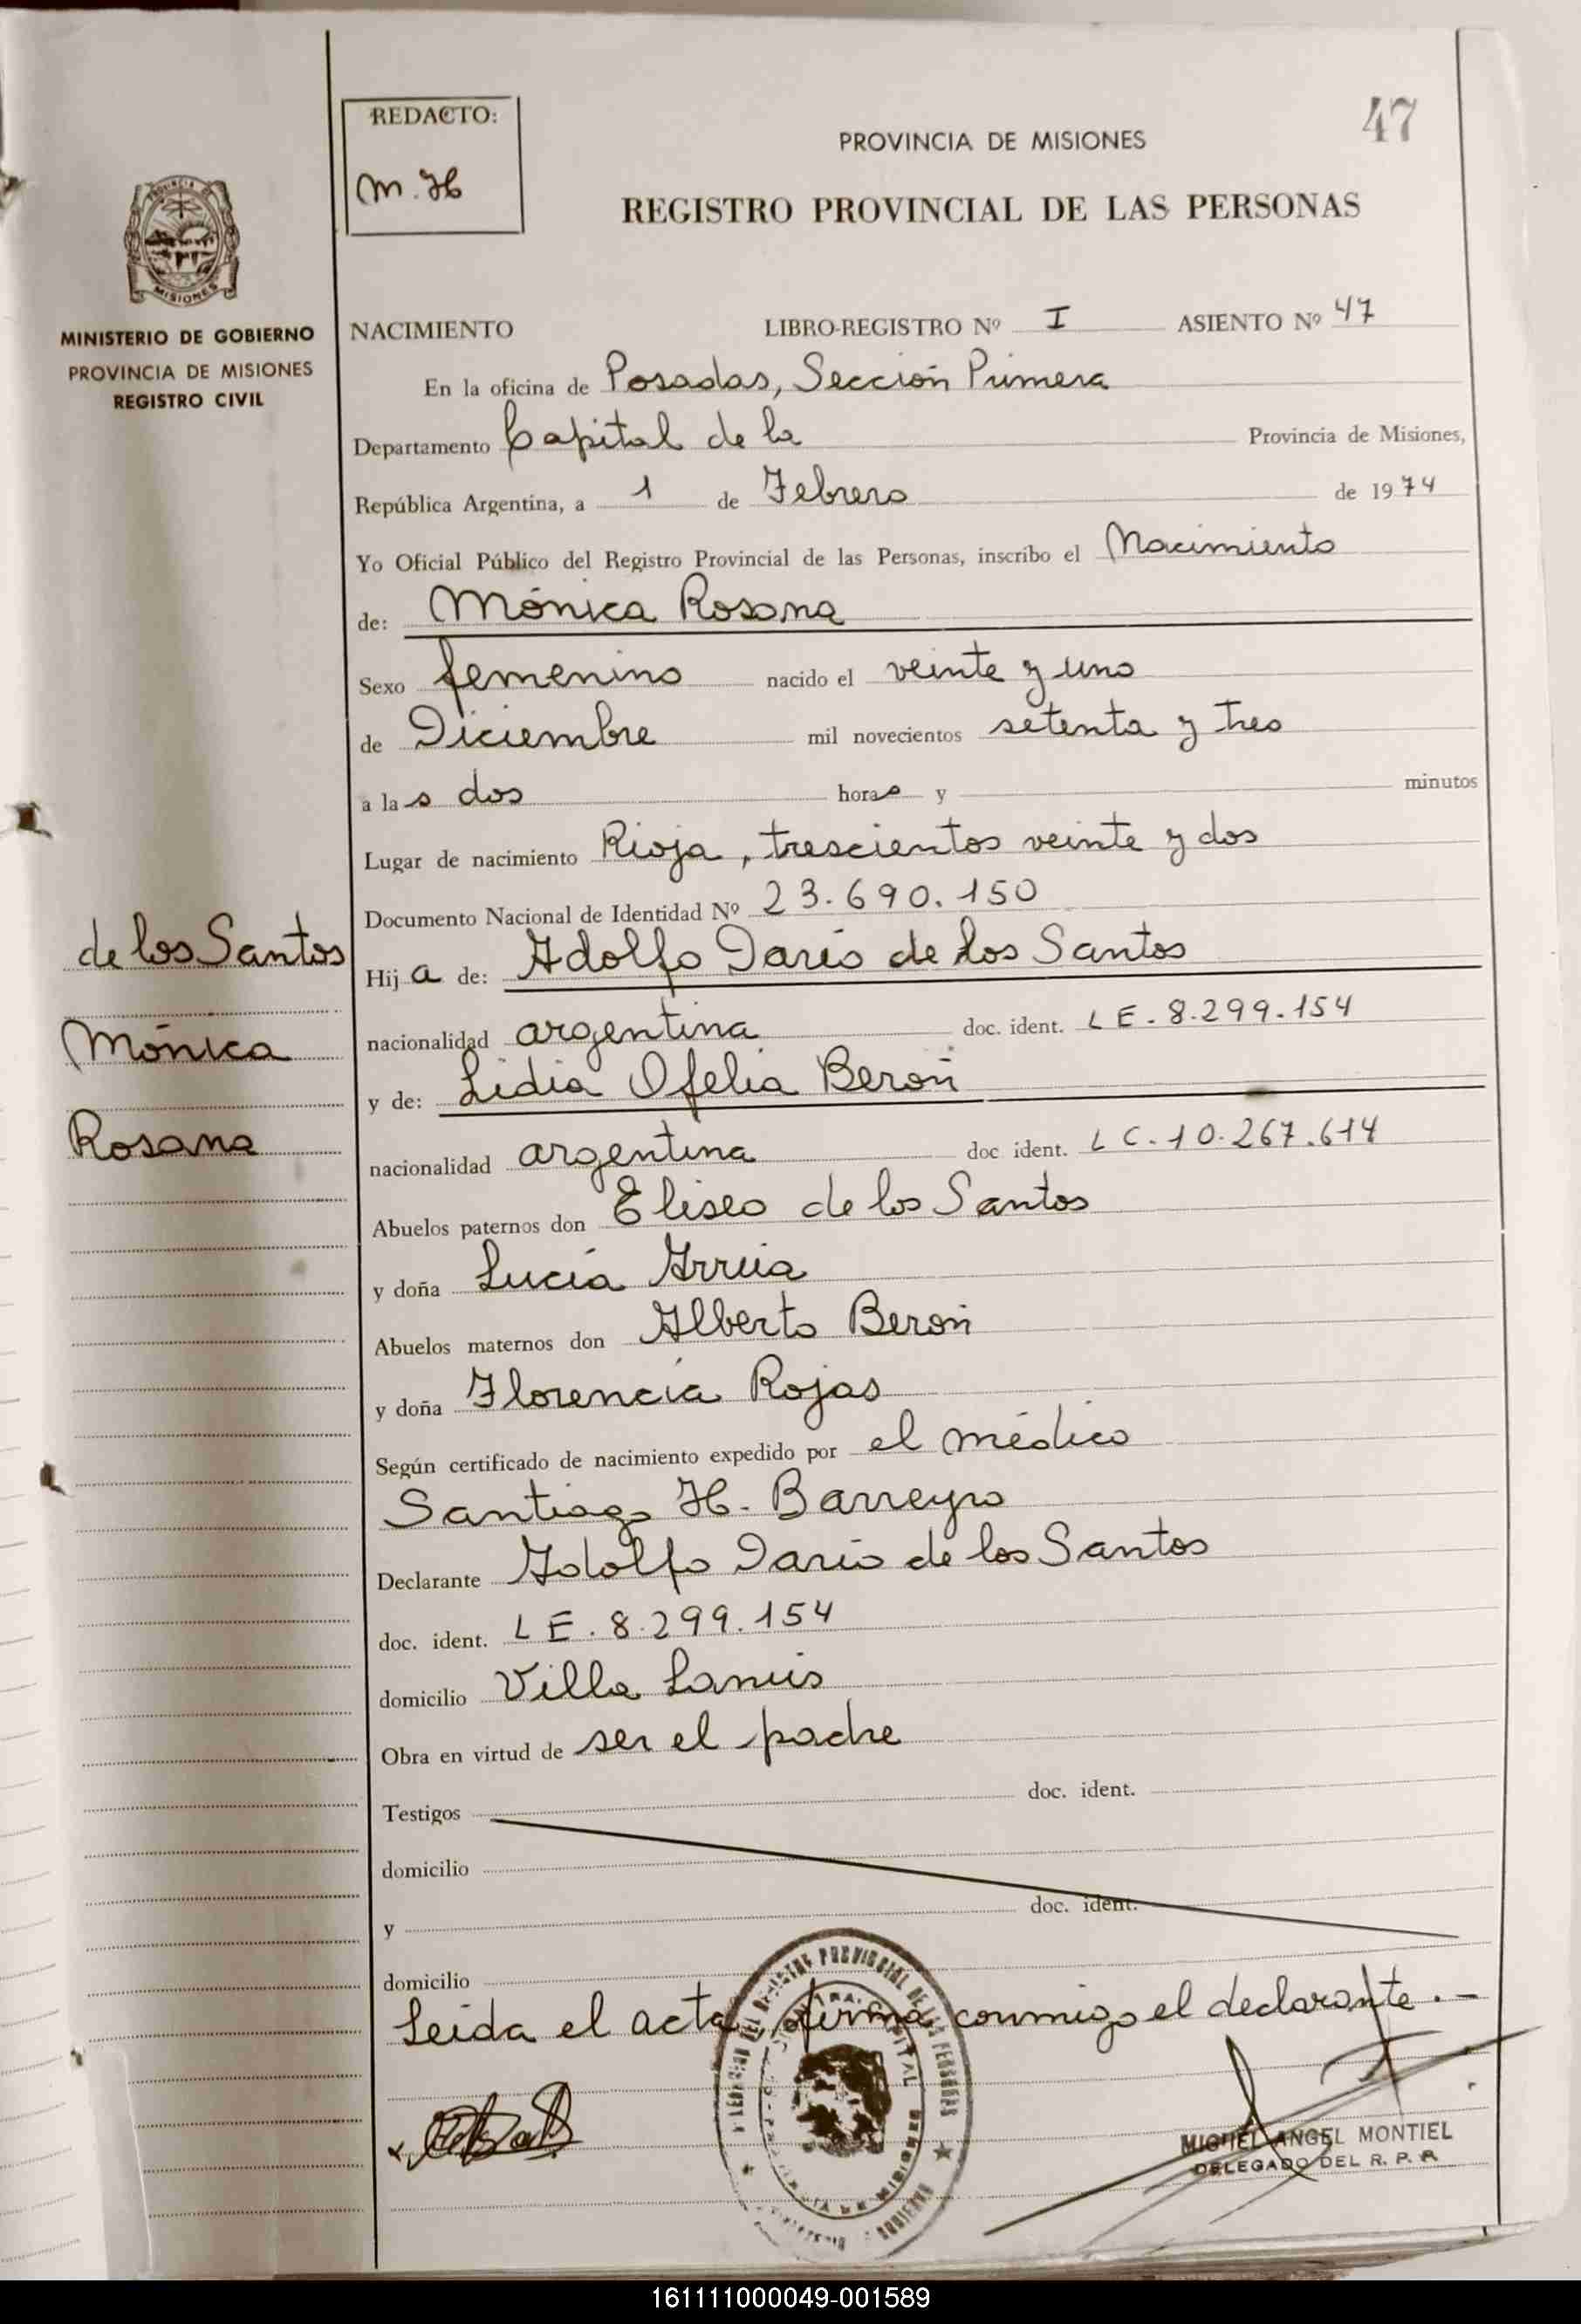 REDACTO:
M. H
47
PROVINCIA DE MISIONES
REGISTRO PROVINCIAL DE LAS PERSONAS
MISIONES
MINISTERIO DE GOBIERNO
PROVINCIA DE MISIONES
REGISTRO CIVIL
NACIMIENTO LIBRO-REGISTRO Nº I ASIENTO Nº 47
En la oficina de Posadas, Sección Primera
Departamento Capital de la Provincia de Misiones,
República Argentina, a 1 de Febrero de 1974
Yo Oficial Público del Registro Provincial de las Personas, inscribo el Nacimiento
de: Mónica Rosana
Sexo femenino nacido el veinte y uno
de Diciembre mil novecientos setenta y tres
a las dos horas y minutos
Lugar de nacimiento Rioja, trescientos veinte y dos
Documento Nacional de Identidad Nº 23.690.150
de los Santos
Mónica
Rosana
Hija de: Adolfo Darío de los Santos
nacionalidad argentina doc. ident. L E. 8.299.154
y de: Lidia Ofelia Berón
nacionalidad argentina doc ident. L C. 10.267.614
Abuelos paternos don Eliseo de los Santos
y doña Lucía Arrúa
Abuelos maternos don Alberto Berón
y doña Florencia Rojas
Según certificado de nacimiento expedido por el médico
Santiago H. Barreyro
Declarante Adolfo Darío de los Santos
doc. ident. L E. 8.299.154
domicilio Villa Lanús
Obra en virtud de ser el padre
Testigos doc. ident.
domicilio
y doc. ident.
domicilio
Leída el acta, firma conmigo el declarante.-
MIGUEL ANGEL MONTIEL
DELEGADO DEL R. P. P.
161111000049-001589